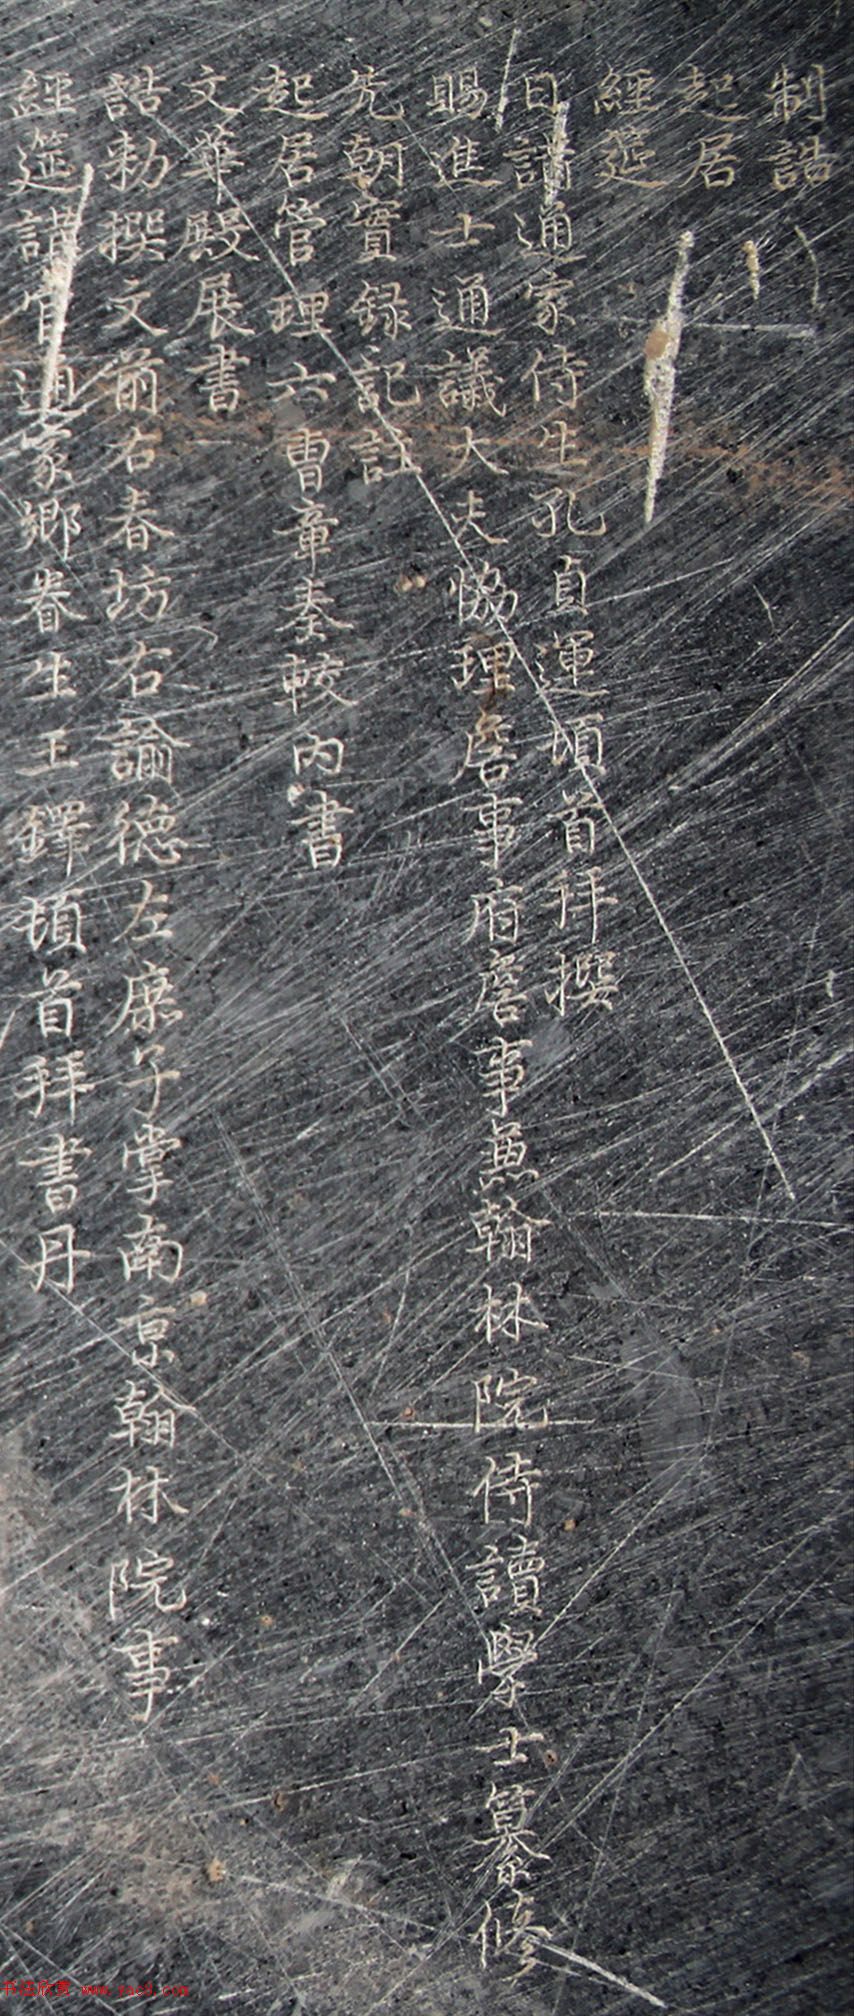 制誥
起居
經筵
日講通家侍生孔貞運頓首拜撰
賜進士通議大夫協理詹事府詹事兼翰林院侍讀學士纂修
先朝實録記註
起居管理六曹章奏較內書
文華殿展書
誥勅撰文前右春坊右諭德左庶子掌南京翰林院事
經筵講官通家鄉眷生王鐸頓首拜書丹
书法欣赏 www.yac8.com